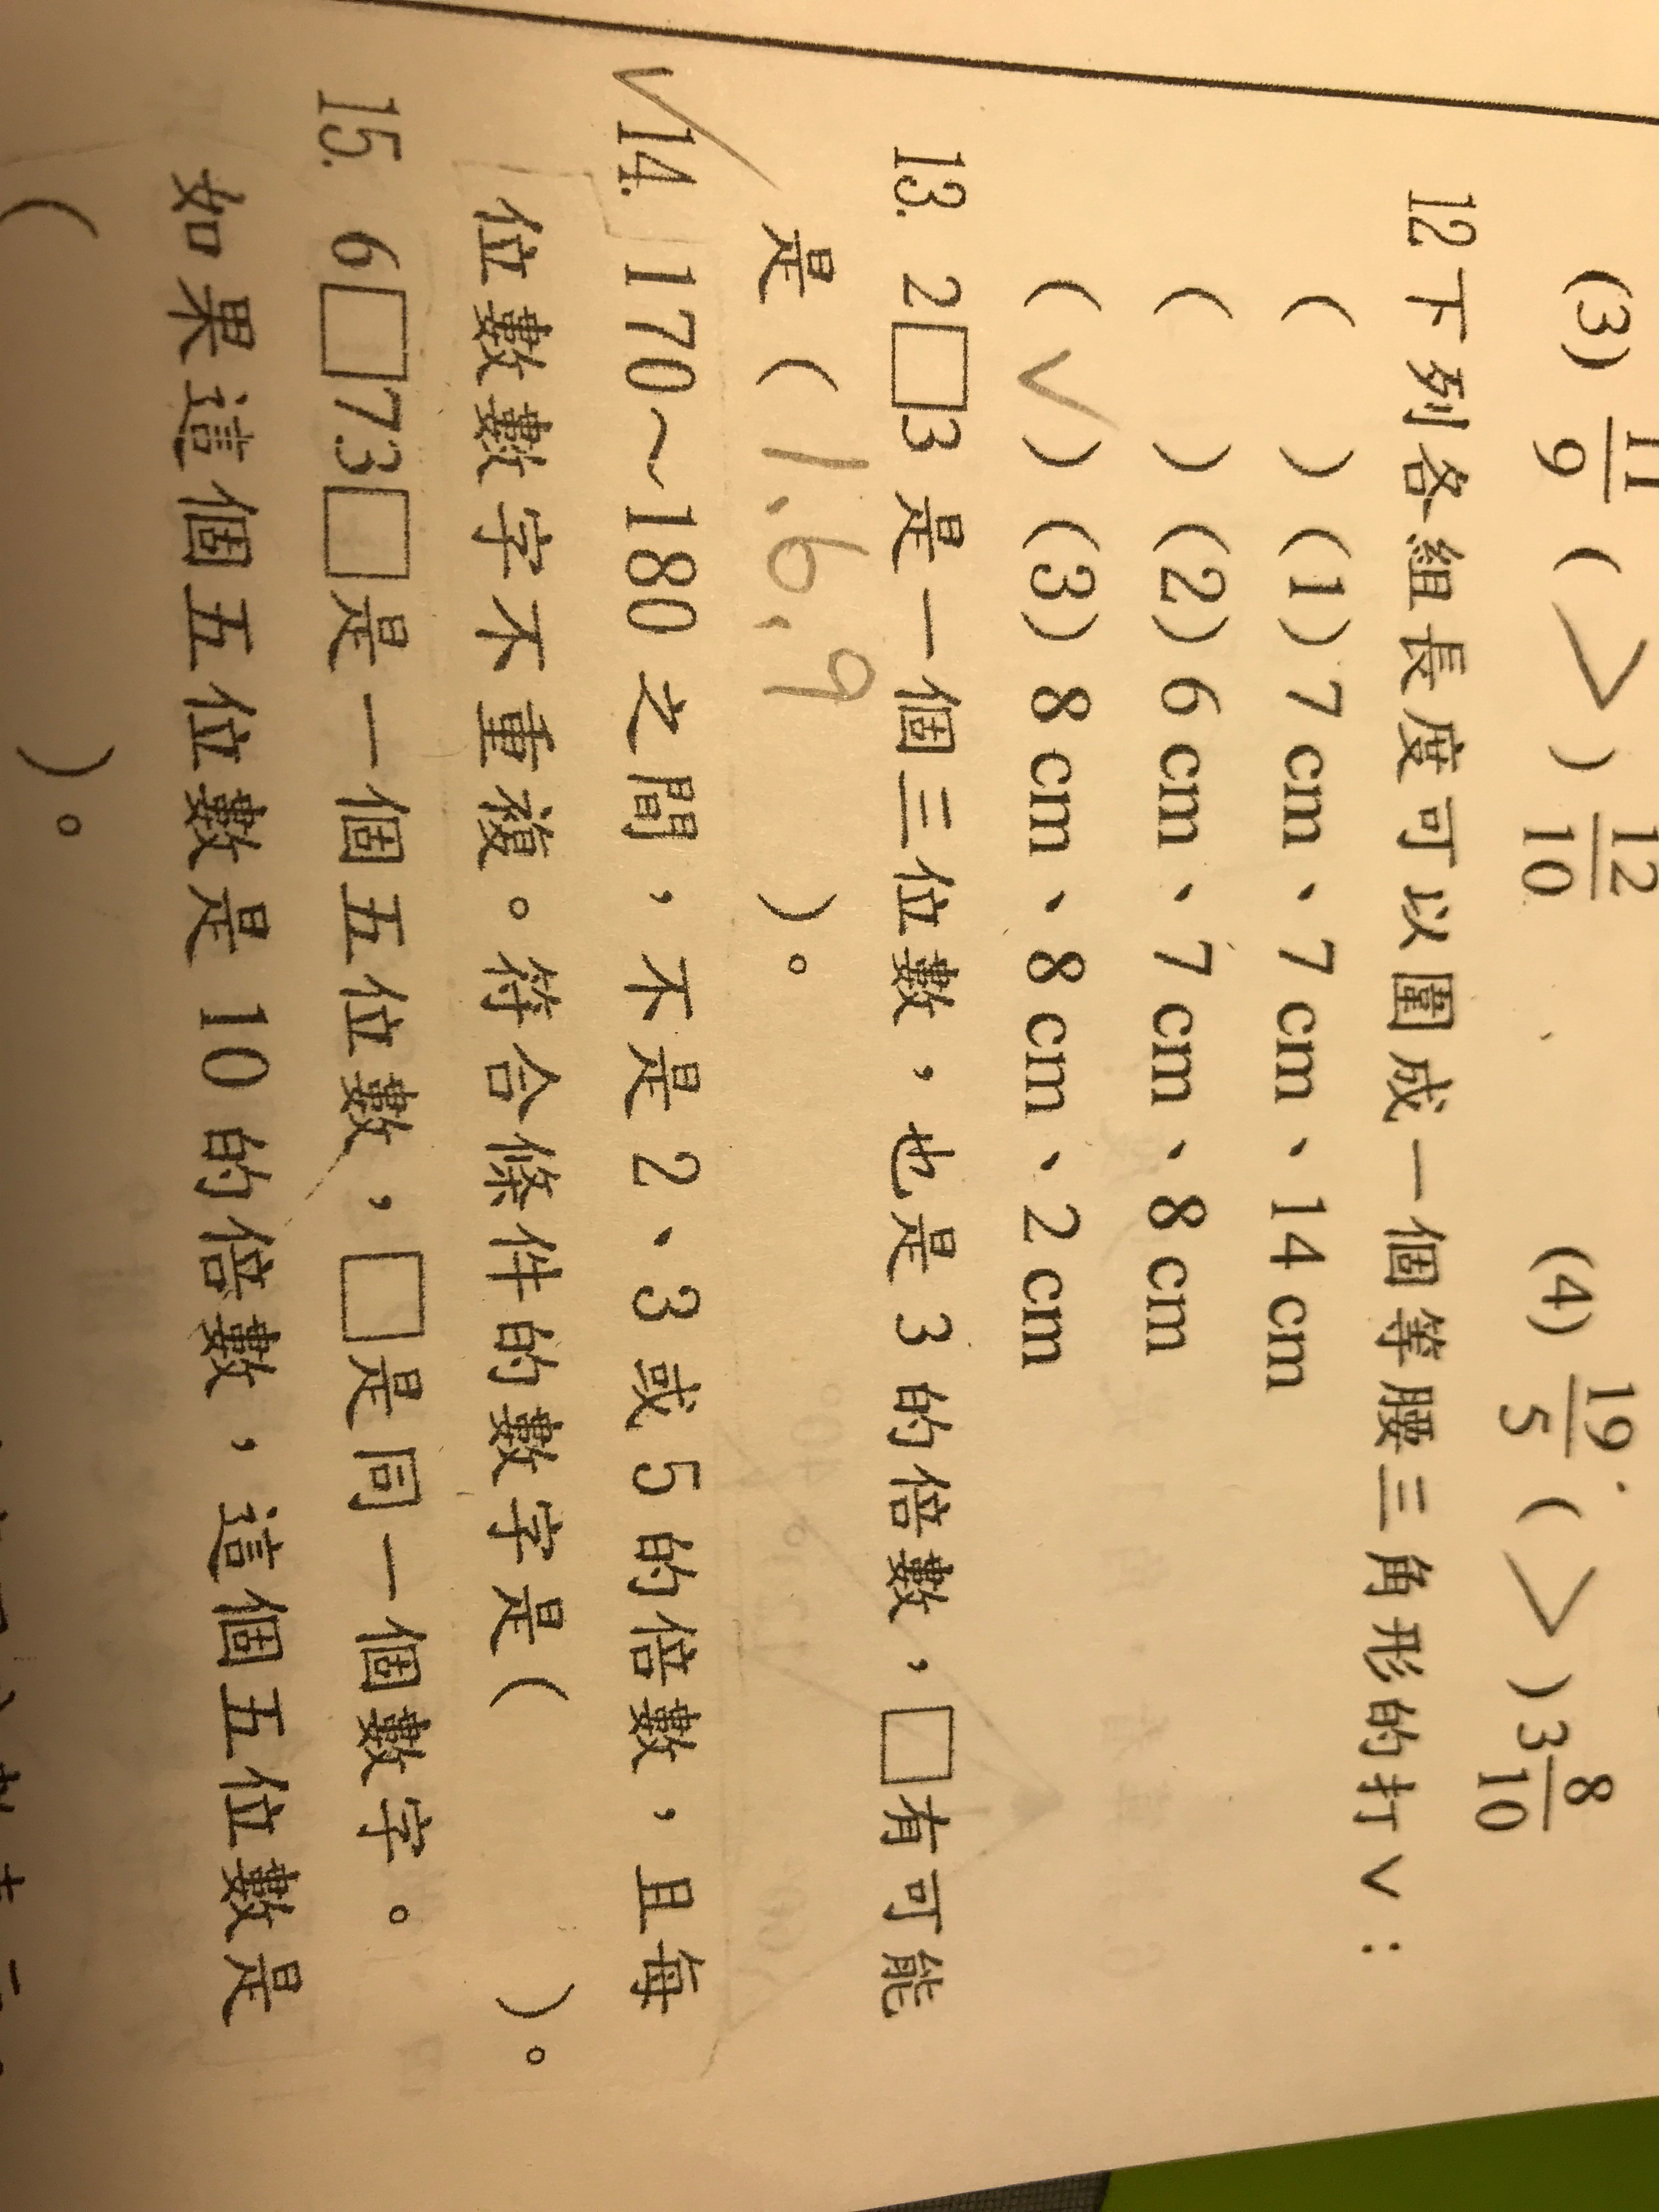 (3) 11/9 ( > ) 12/10 (4) 19/5 ( > ) 3 8/10
12.下列各組長度可以圍成一個等腰三角形的打∨：
( ) (1) 7 cm、7 cm、14 cm
( ) (2) 6 cm、7 cm、8 cm
( ✓ ) (3) 8 cm、8 cm、2 cm
13. 2□3 是一個三位數，也是 3 的倍數，□有可能
是 ( 1、6、9 )。
✓14. 170～180 之間，不是 2、3 或 5 的倍數，且每
位數字不重複。符合條件的數字是 ( )。
15. 6□73□是一個五位數，□是同一個數字。
如果這個五位數是 10 的倍數，這個五位數是
( )。